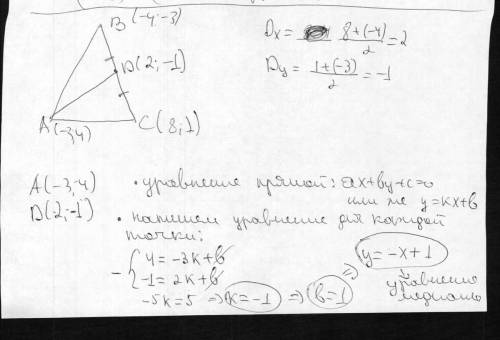 B(-4;-3)
D(2;-1)
A(-3,4)
C(8;1)
Dx = 8+(-4)/2 = 2
Dy = 1+(-3)/2 = -1
A(-3,4)
D(2;-1)
• уравнение прямой: ax+by+c=0
или же y=kx+b
• напишем уравнение для каждой
точки:
- { 4 = -3k+b
-1 = 2k+b
-5k=5 => k=-1 => b=1 => y=-x+1
уравнение
медианы